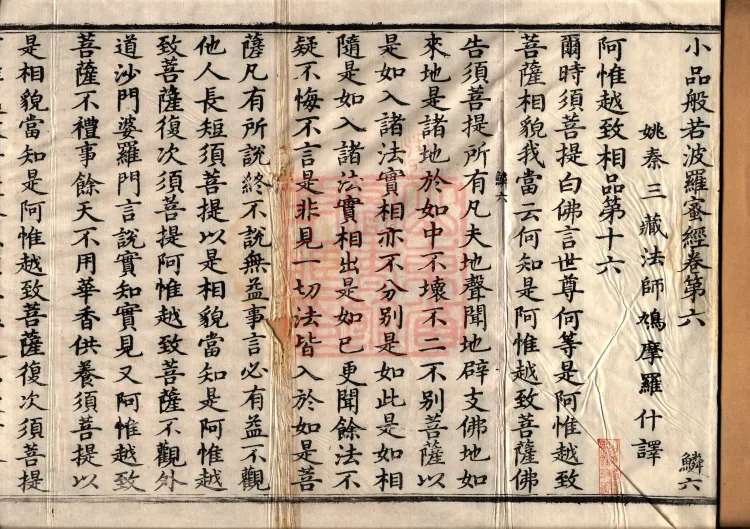 小品般若波羅蜜經卷第六
鱗六
姚秦三藏法師鳩摩羅什譯
阿惟越致相品第十六
爾時須菩提白佛言世尊何等是阿惟越致
菩薩相貌我當云何知是阿惟越致菩薩佛
鱗六
告須菩提所有凡夫地聲聞地辟支佛地如
來地是諸地於如中不壞不二不別菩薩以
是如入諸法實相亦不分別是如此是如相
隨是如入諸法實相出是如已更聞餘法不
疑不悔不言是非見一切法皆入於如是菩
薩凡有所說終不說無益事言必有益不觀
他人長短須菩提以是相貌當知是阿惟越
致菩薩復次須菩提阿惟越致菩薩不觀外
道沙門婆羅門言說實知實見又阿惟越致
菩薩不禮事餘天不用華香供養須菩提以
是相貌當知是阿惟越致菩薩復次須菩提